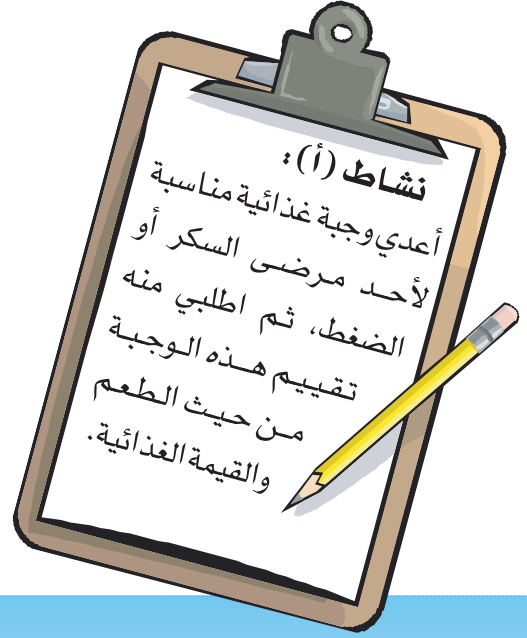 نشاط (أ):
أعدي وجبة غذائية مناسبة
لأحد مرضى السكر أو
الضغط، ثم اطلبي منه
تقييم هذه الوجبة
من حيث الطعم
والقيمة الغذائية.